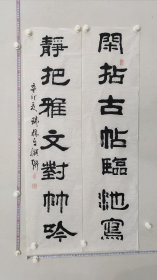 閑拈古帖臨池寫
靜把雅文對竹吟